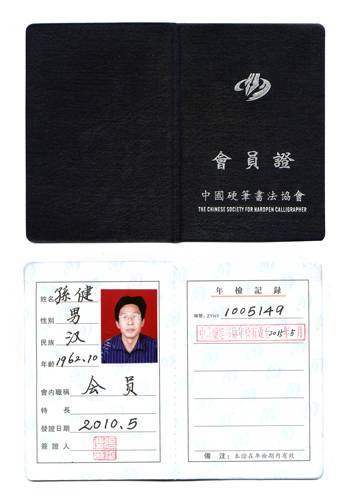 會員證
中國硬筆書法協會
THE CHINESE SOCIETY FOR HARDPEN CALLIGRAPHER
姓名 孫健
性别 男
民族 汉
年齡 1962.10
會內職稱 会員
特長
發證日期 2010.5
簽證人
年檢記録
編號: ZYHX 1005149
2015年5月
備注: 本證在年檢期内有效